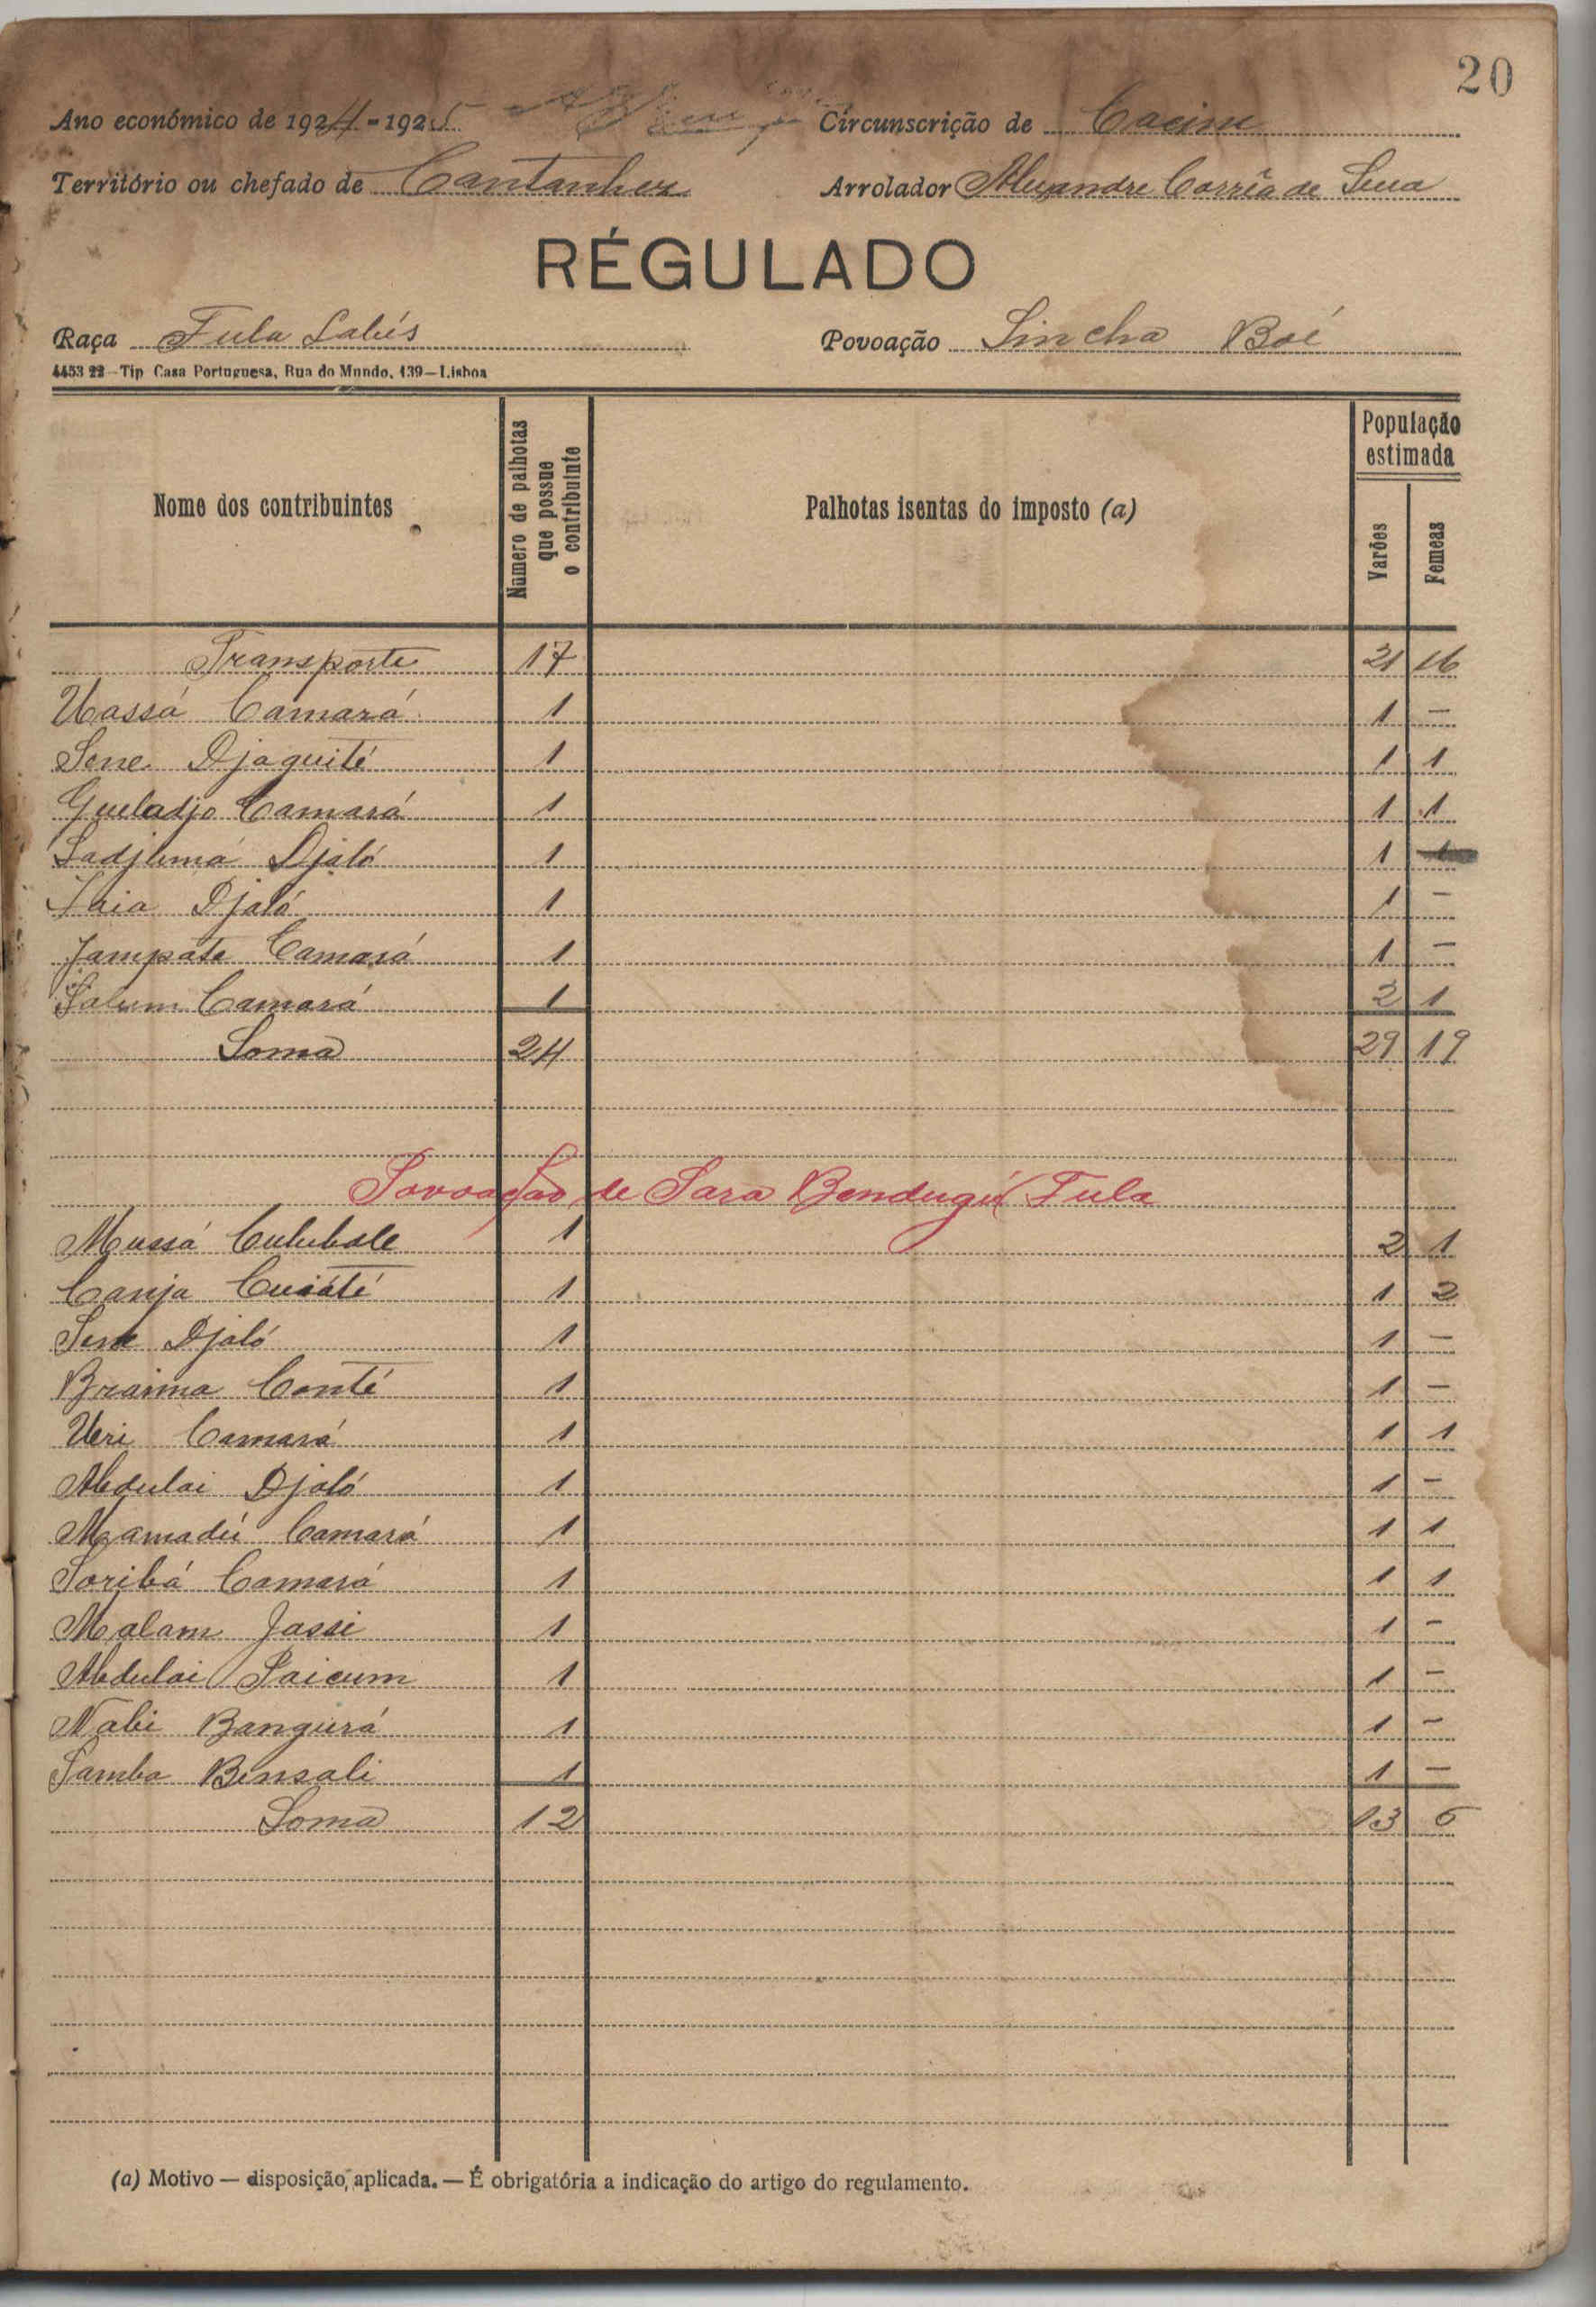 20
Ano económico de 1924-1925 Circunscrição de Cacine
Território ou chefado de Cantanhez Arrolador Alexandre Corrêa de Sena
RÉGULADO
Raça Fula Labés Povoação Sincha Boé
4453 22 — Tip Casa Portuguesa, Rua do Mundo, 139 — Lisboa
Nome dos contribuintes Número de palhotas que possue o contribuinte Palhotas isentas do imposto (a) População estimada Varões Femeas
Transporte 17 21 16
Uassá Camará 1 1 -
Sene Djaquité 1 1 1
Gueladjo Camará 1 1 1
Sadjumá Djaló 1 1
Iaia Djaló 1 1 -
Jampate Camará 1 1 -
Salum Camará 1 2 1
Soma 24 29 19
Povoação de Sara Bendugú (Fula
Mussá Culubale 1 2 1
Canja Cuiaté 1 1 2
Sene Djaló 1 1 -
Braima Conté 1 1 -
Ueri Camará 1 1 1
Abdulai Djaló 1 1 -
Mamadú Camará 1 1 1
Soribá Camará 1 1 1
Malam Jassi 1 1 -
Abdulai Saicum 1 1 -
Nabi Bangurá 1 1 -
Samba Bensali 1 1 -
Soma 12 13 6
(a) Motivo — disposição, aplicada. — É obrigatória a indicação do artigo do regulamento.